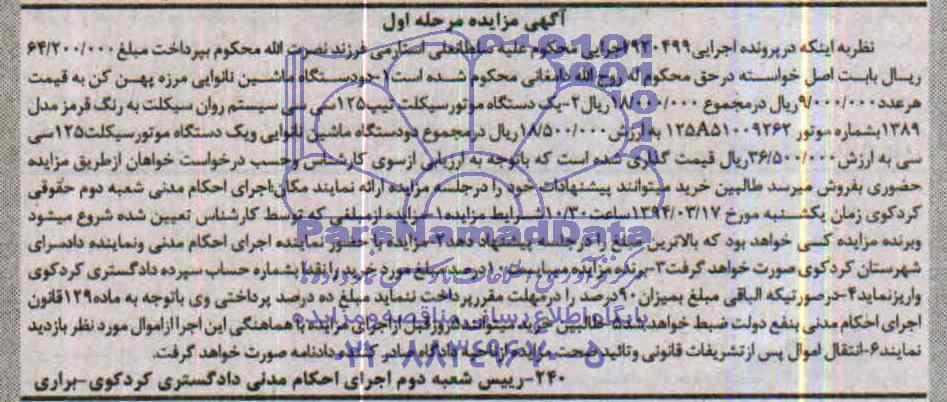 آگهی مزایده مرحله اول
نظر به اینکه در پرونده اجرایی ۹۲۰۴۹۹ اجرایی محکوم علیه سلطانعلی استارمی فرزند نصرت الله محکوم بپرداخت مبلغ ۶۴/۲۰۰/۰۰۰
ریال بابت اصل خواسته در حق محکوم له روح الله دامغانی محکوم شده است ۱-دو دستگاه ماشین نانوایی مرزه پهن کن به قیمت
هر عدد ۹/۰۰۰/۰۰۰ ریال در مجموع ۱۸/۰۰۰/۰۰۰ ریال ۲-یک دستگاه موتور سیکلت تیپ ۱۲۵ سی سی سیستم روان سیکلت به رنگ قرمز مدل
۱۳۸۹ بشماره موتور به ارزش ۱۸/۵۰۰/۰۰۰ ریال در مجموع دو دستگاه ماشین نانوایی و یک دستگاه موتور سیکلت ۱۲۵ سی
سی به ارزش ۳۶/۵۰۰/۰۰۰ ریال قیمت گذاری شده است که باتوجه به ارزیابی از سوی کارشناس و حسب درخواست خواهان از طریق مزایده
حضوری بفروش میرسد طالبین خرید میتوانند پیشنهادات خود را در جلسه مزایده ارائه نمایند مکان: اجرای احکام مدنی شعبه دوم حقوقی
کردکوی زمان یکشنبه مورخ ۱۳۹۴/۰۳/۱۷ ساعت ۱۰/۳۰ شرایط مزایده ۱-مزایده از مبلغی که توسط کارشناس تعیین شده شروع میشود
وبرنده مزایده کسی خواهد بود که بالاترین مبلغ را در جلسه پیشنهاد دهد ۲-مزایده با حضور نماینده اجرای احکام مدنی ونماینده دادسرای
شهرستان کردکوی صورت خواهد گرفت ۳-برنده مزایده میبایست ۱۰ درصد مبلغ مورد خرید را نقدا بشماره حساب سپرده دادگستری کردکوی
واریز نماید ۴-در صورتیکه الباقی مبلغ بمیزان ۹۰ درصد را در مهلت مقرر پرداخت ننماید مبلغ ده درصد پرداختی وی باتوجه به ماده ۱۲۹ قانون
اجرای احکام مدنی بنفع دولت ضبط خواهد شد ۵-طالبین خرید میتوانند ۵ روز قبل از اجرای مزایده با هماهنگی این اجرا از اموال مورد نظر بازدید
نمایند ۶-انتقال اموال پس از تشریفات قانونی وتائید صحت مزایده از ناحیه دادگاه صادر کننده دادنامه صورت خواهد گرفت.
۲۴۰-رییس شعبه دوم اجرای احکام مدنی دادگستری کردکوی-براری
ParsNamadData
پایگاه اطلاع رسانی مناقصه و مزایده
۰۲۱-۸۸۳۴۹۶۷۰-۵